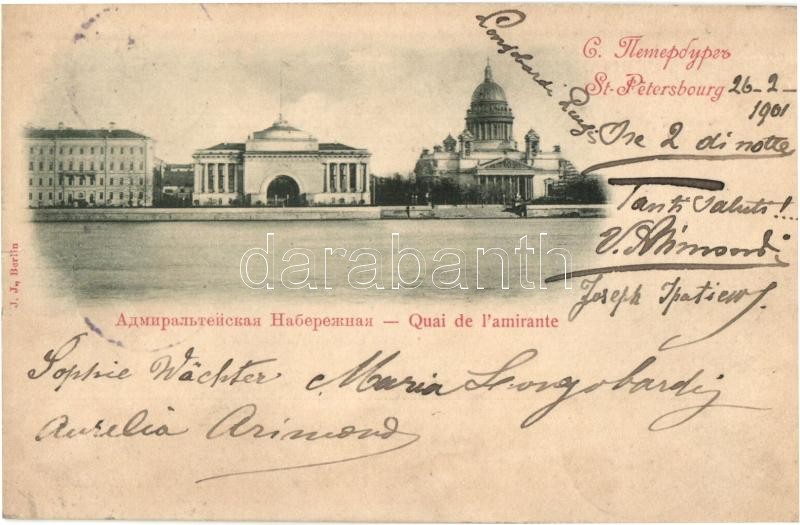 С. Петербургъ
St-Pétersbourg
26-2-
1901
Ore 2 di notte
Tanti saluti!...
V. Arimondi
Joseph Ipatiew
Longobardi Luigi
J. J., Berlin
darabanth
Адмиральтейская Набережная — Quai de l'amirante
Sophie Wächter Maria Longobardi
Aurelia Arimondi